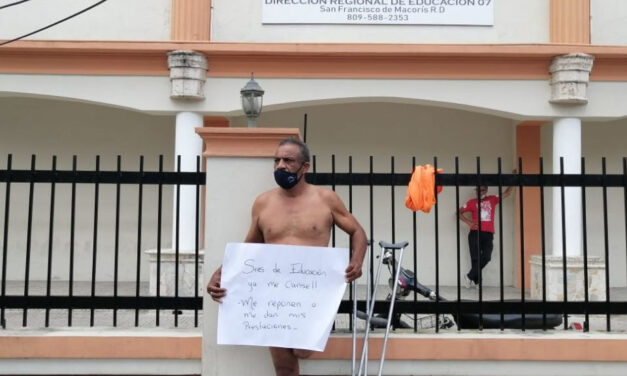 DIRECCIÓN REGIONAL DE EDUCACIÓN 07
San Francisco de Macorís R.D
809-588-2353
Sres de Educación
ya me Canse!!
- Me reponen o
me dan mis
Prestaciones -